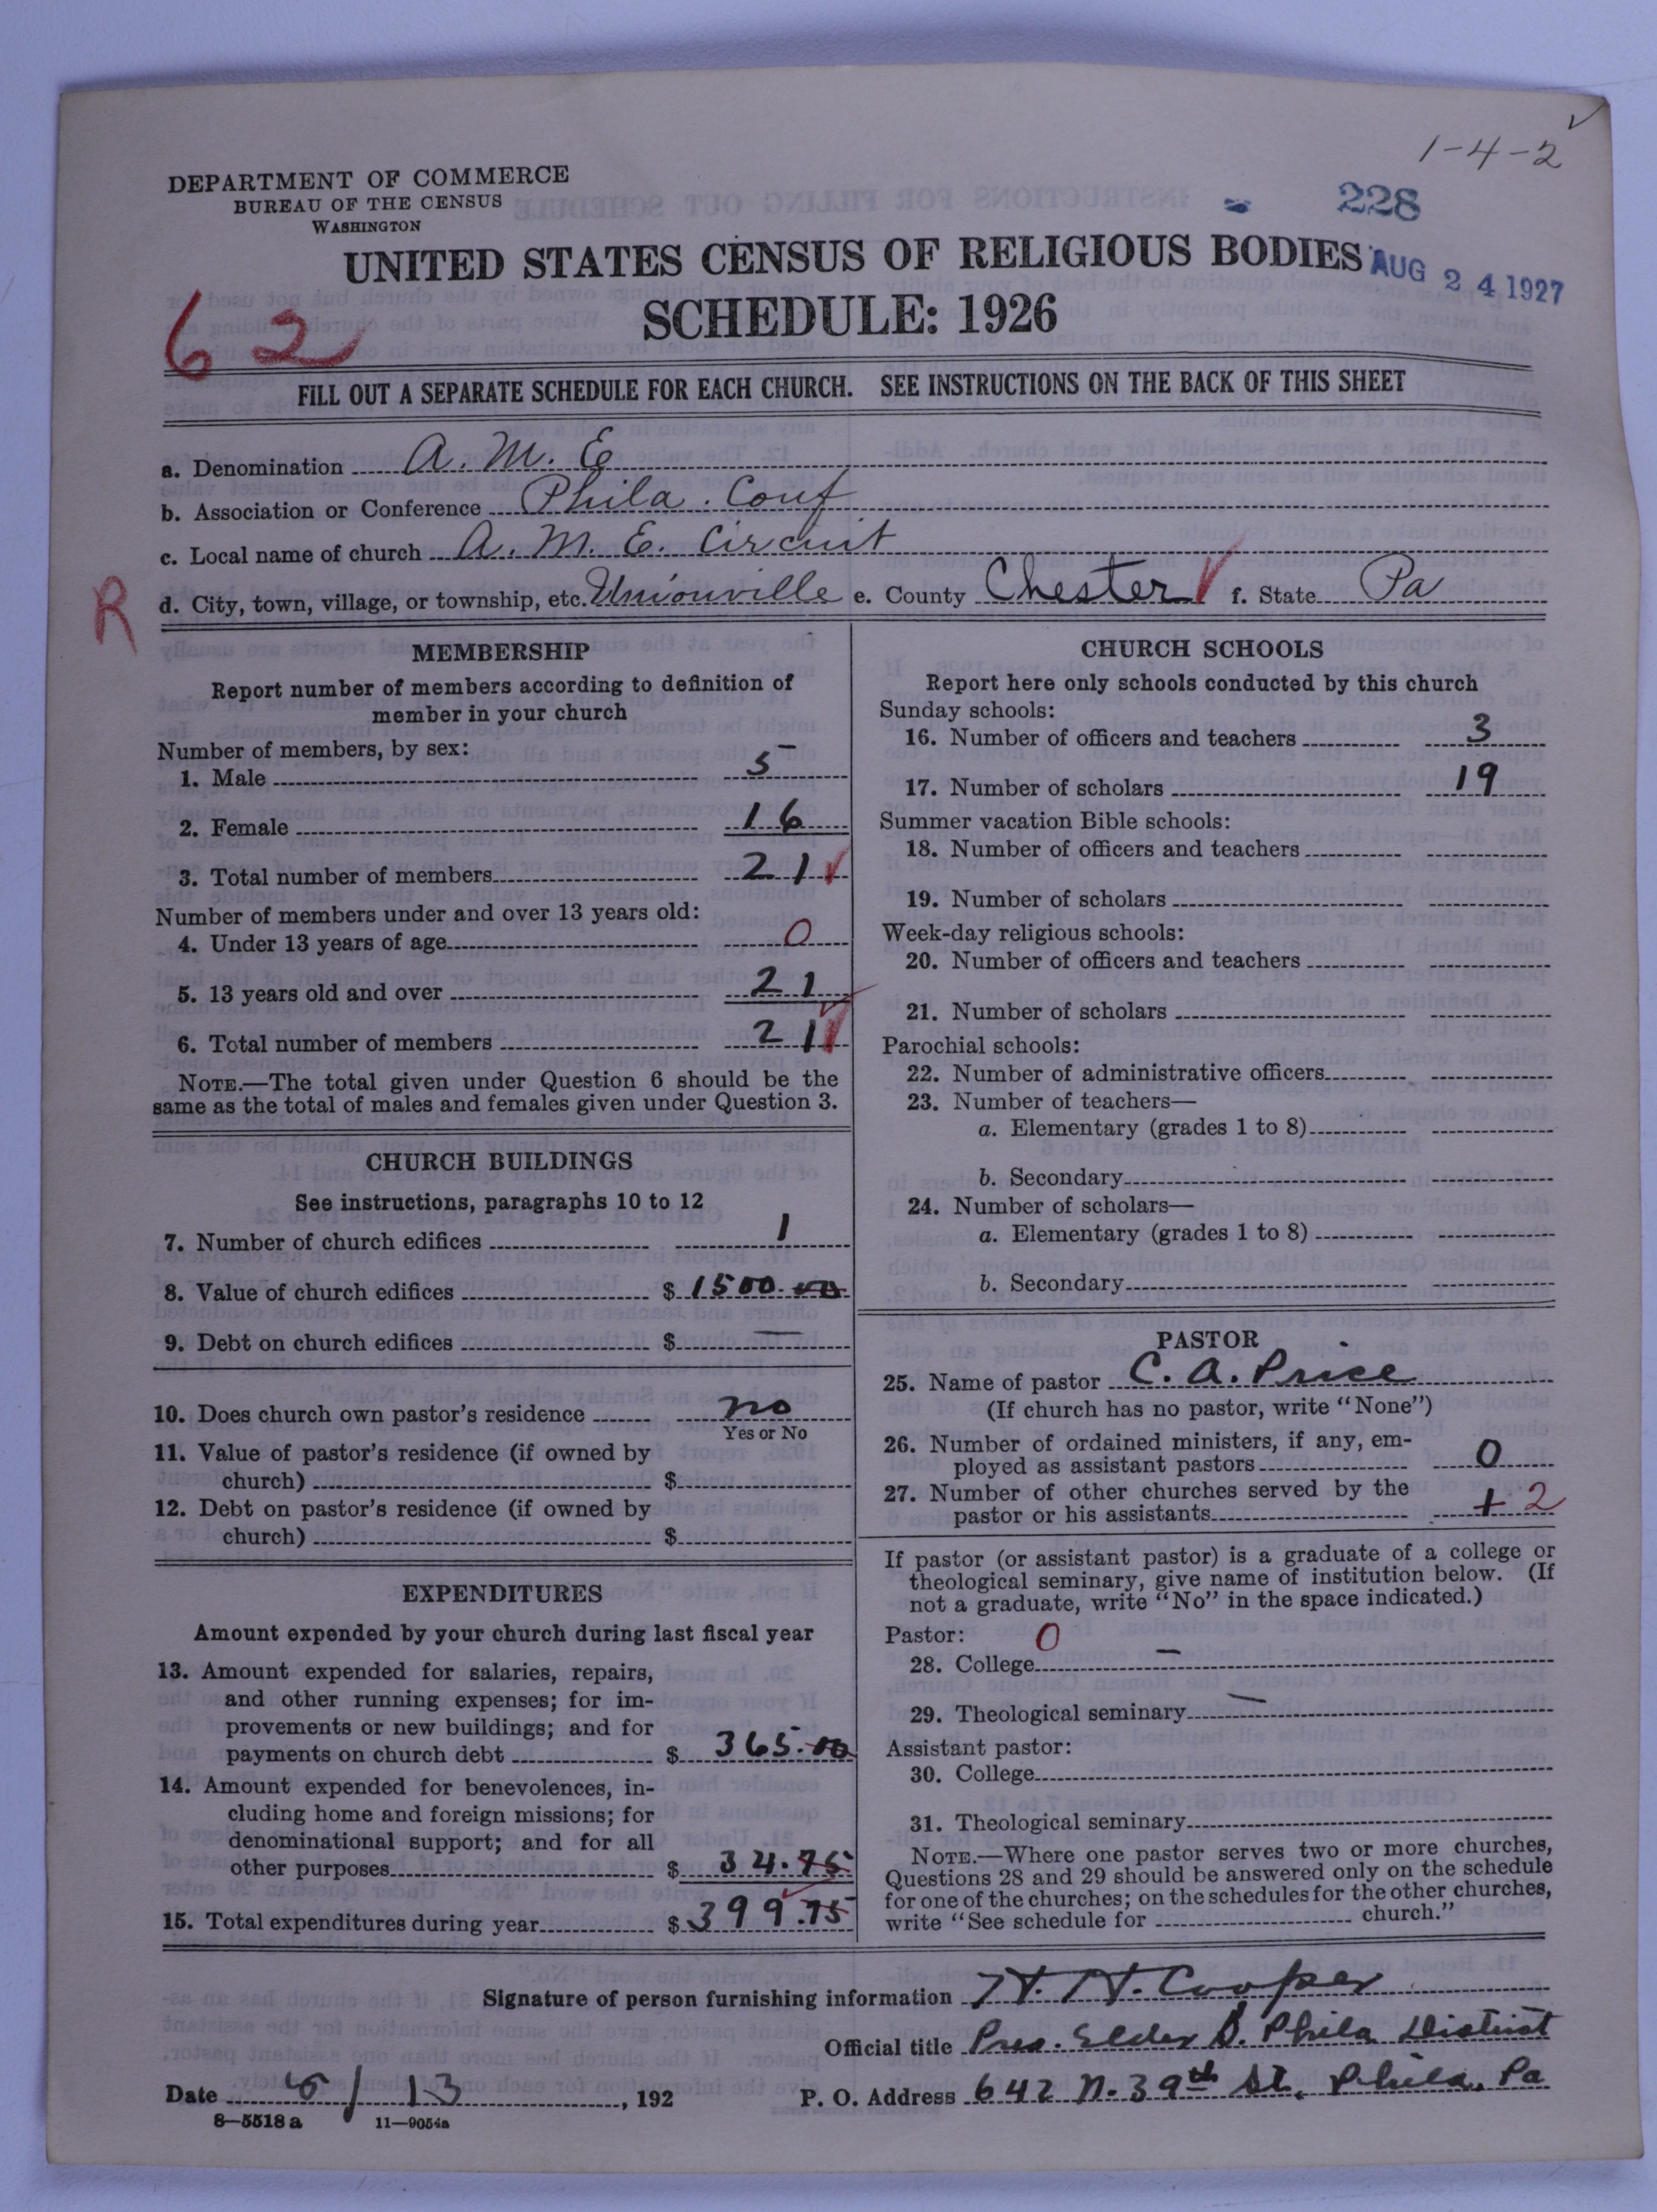 1-4-2
DEPARTMENT OF COMMERCE
BUREAU OF THE CENSUS
WASHINGTON
228
UNITED STATES CENSUS OF RELIGIOUS BODIES
AUG 24 1927
SCHEDULE: 1926
62
FILL OUT A SEPARATE SCHEDULE FOR EACH CHURCH. SEE INSTRUCTIONS ON THE BACK OF THIS SHEET
a. Denomination A. M. E
b. Association or Conference Phila. Conf
c. Local name of church A. M. E. Circuit
R
d. City, town, village, or township, etc. Unionville e. County Chester f. State Pa
MEMBERSHIP
Report number of members according to definition of
member in your church
Number of members, by sex:
1. Male 5
2. Female 16
3. Total number of members 21
Number of members under and over 13 years old:
4. Under 13 years of age 0
5. 13 years old and over 21
6. Total number of members 21
NOTE.—The total given under Question 6 should be the
same as the total of males and females given under Question 3.
CHURCH BUILDINGS
See instructions, paragraphs 10 to 12
7. Number of church edifices 1
8. Value of church edifices $ 1500.00
9. Debt on church edifices $ —
10. Does church own pastor's residence no
Yes or No
11. Value of pastor's residence (if owned by
church) $
12. Debt on pastor's residence (if owned by
church) $
EXPENDITURES
Amount expended by your church during last fiscal year
13. Amount expended for salaries, repairs,
and other running expenses; for im-
provements or new buildings; and for
payments on church debt $ 365.00
14. Amount expended for benevolences, in-
cluding home and foreign missions; for
denominational support; and for all
other purposes $ 34.75
15. Total expenditures during year $ 399.75
CHURCH SCHOOLS
Report here only schools conducted by this church
Sunday schools:
16. Number of officers and teachers 3
17. Number of scholars 19
Summer vacation Bible schools:
18. Number of officers and teachers
19. Number of scholars
Week-day religious schools:
20. Number of officers and teachers
21. Number of scholars
Parochial schools:
22. Number of administrative officers
23. Number of teachers—
a. Elementary (grades 1 to 8)
b. Secondary
24. Number of scholars—
a. Elementary (grades 1 to 8)
b. Secondary
PASTOR
25. Name of pastor C. A. Price
(If church has no pastor, write "None")
26. Number of ordained ministers, if any, em-
ployed as assistant pastors 0
27. Number of other churches served by the
pastor or his assistants + 2
If pastor (or assistant pastor) is a graduate of a college or
theological seminary, give name of institution below. (If
not a graduate, write "No" in the space indicated.)
Pastor: 0
28. College —
29. Theological seminary —
Assistant pastor:
30. College
31. Theological seminary
NOTE.—Where one pastor serves two or more churches,
Questions 28 and 29 should be answered only on the schedule
for one of the churches; on the schedules for the other churches,
write "See schedule for church."
Signature of person furnishing information H. H. Cooper
Official title Pres. Elder D. Phila District
Date 5/13, 192 P. O. Address 642 N. 39th St. Phila. Pa
8—5518a 11—9054a